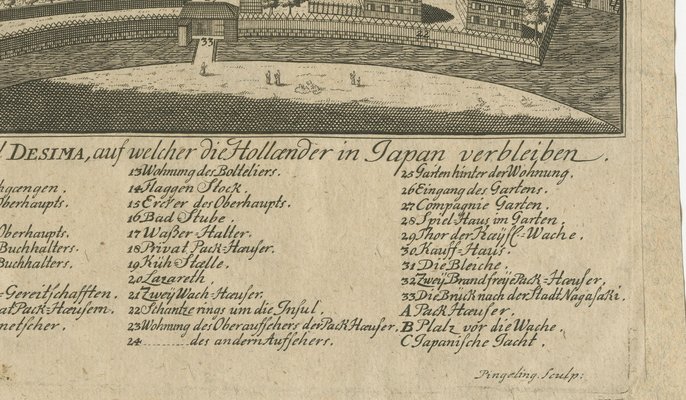 33
22
DESIMA, auf welcher die Hollænder in Japan verbleiben.
hgængen.
Oberhaupts.
Oberhaupts.
Buchhalters.
Buchhalters.
-Gereitschafften.
at Pack-Hæusern.
metscher.
13 Wohnung des Botteliers.
14 Flaggen Stock.
15 Ercker des Oberhaupts.
16 Bad Stube.
17 Waßer-Halter.
18 Privat Pack-Hæuser.
19 Küh Stælle.
20 Lazareth.
21 Zweÿ Wach-Hæuser.
22 Schantze rings um die Insul.
23 Wohnung des Oberaufsehers der Pack Hæuser.
24 ............ des andern Aufsehers.
25 Garten hinter der Wohnung.
26 Eingang des Gartens.
27 Compagnie Garten.
28 Spiel-Haus im Garten.
29 Thor der Kæÿsl.-Wache.
30 Kauff-Haus.
31 Die Bleiche.
32 Zweÿ Brandfreÿe Pack-Hæuser.
33 Die Bruck nach der Stadt Nagasaki.
A Pack Hæuser.
B Platz vor die Wache.
C Japanische Jacht.
Pingeling. Sculp: